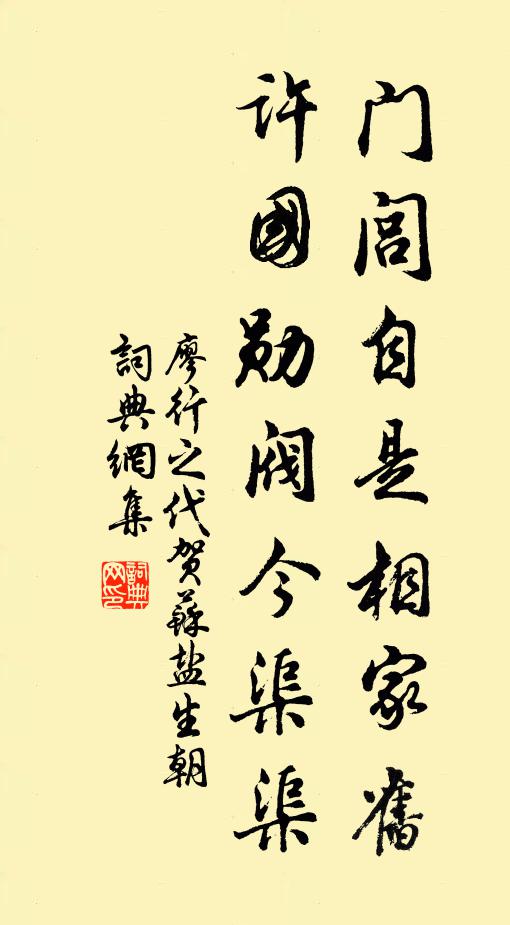 门闾自是相家舊
许國勋阀今渠渠
廖行之代贺蘇盐生朝
詞典網集
詞典网印